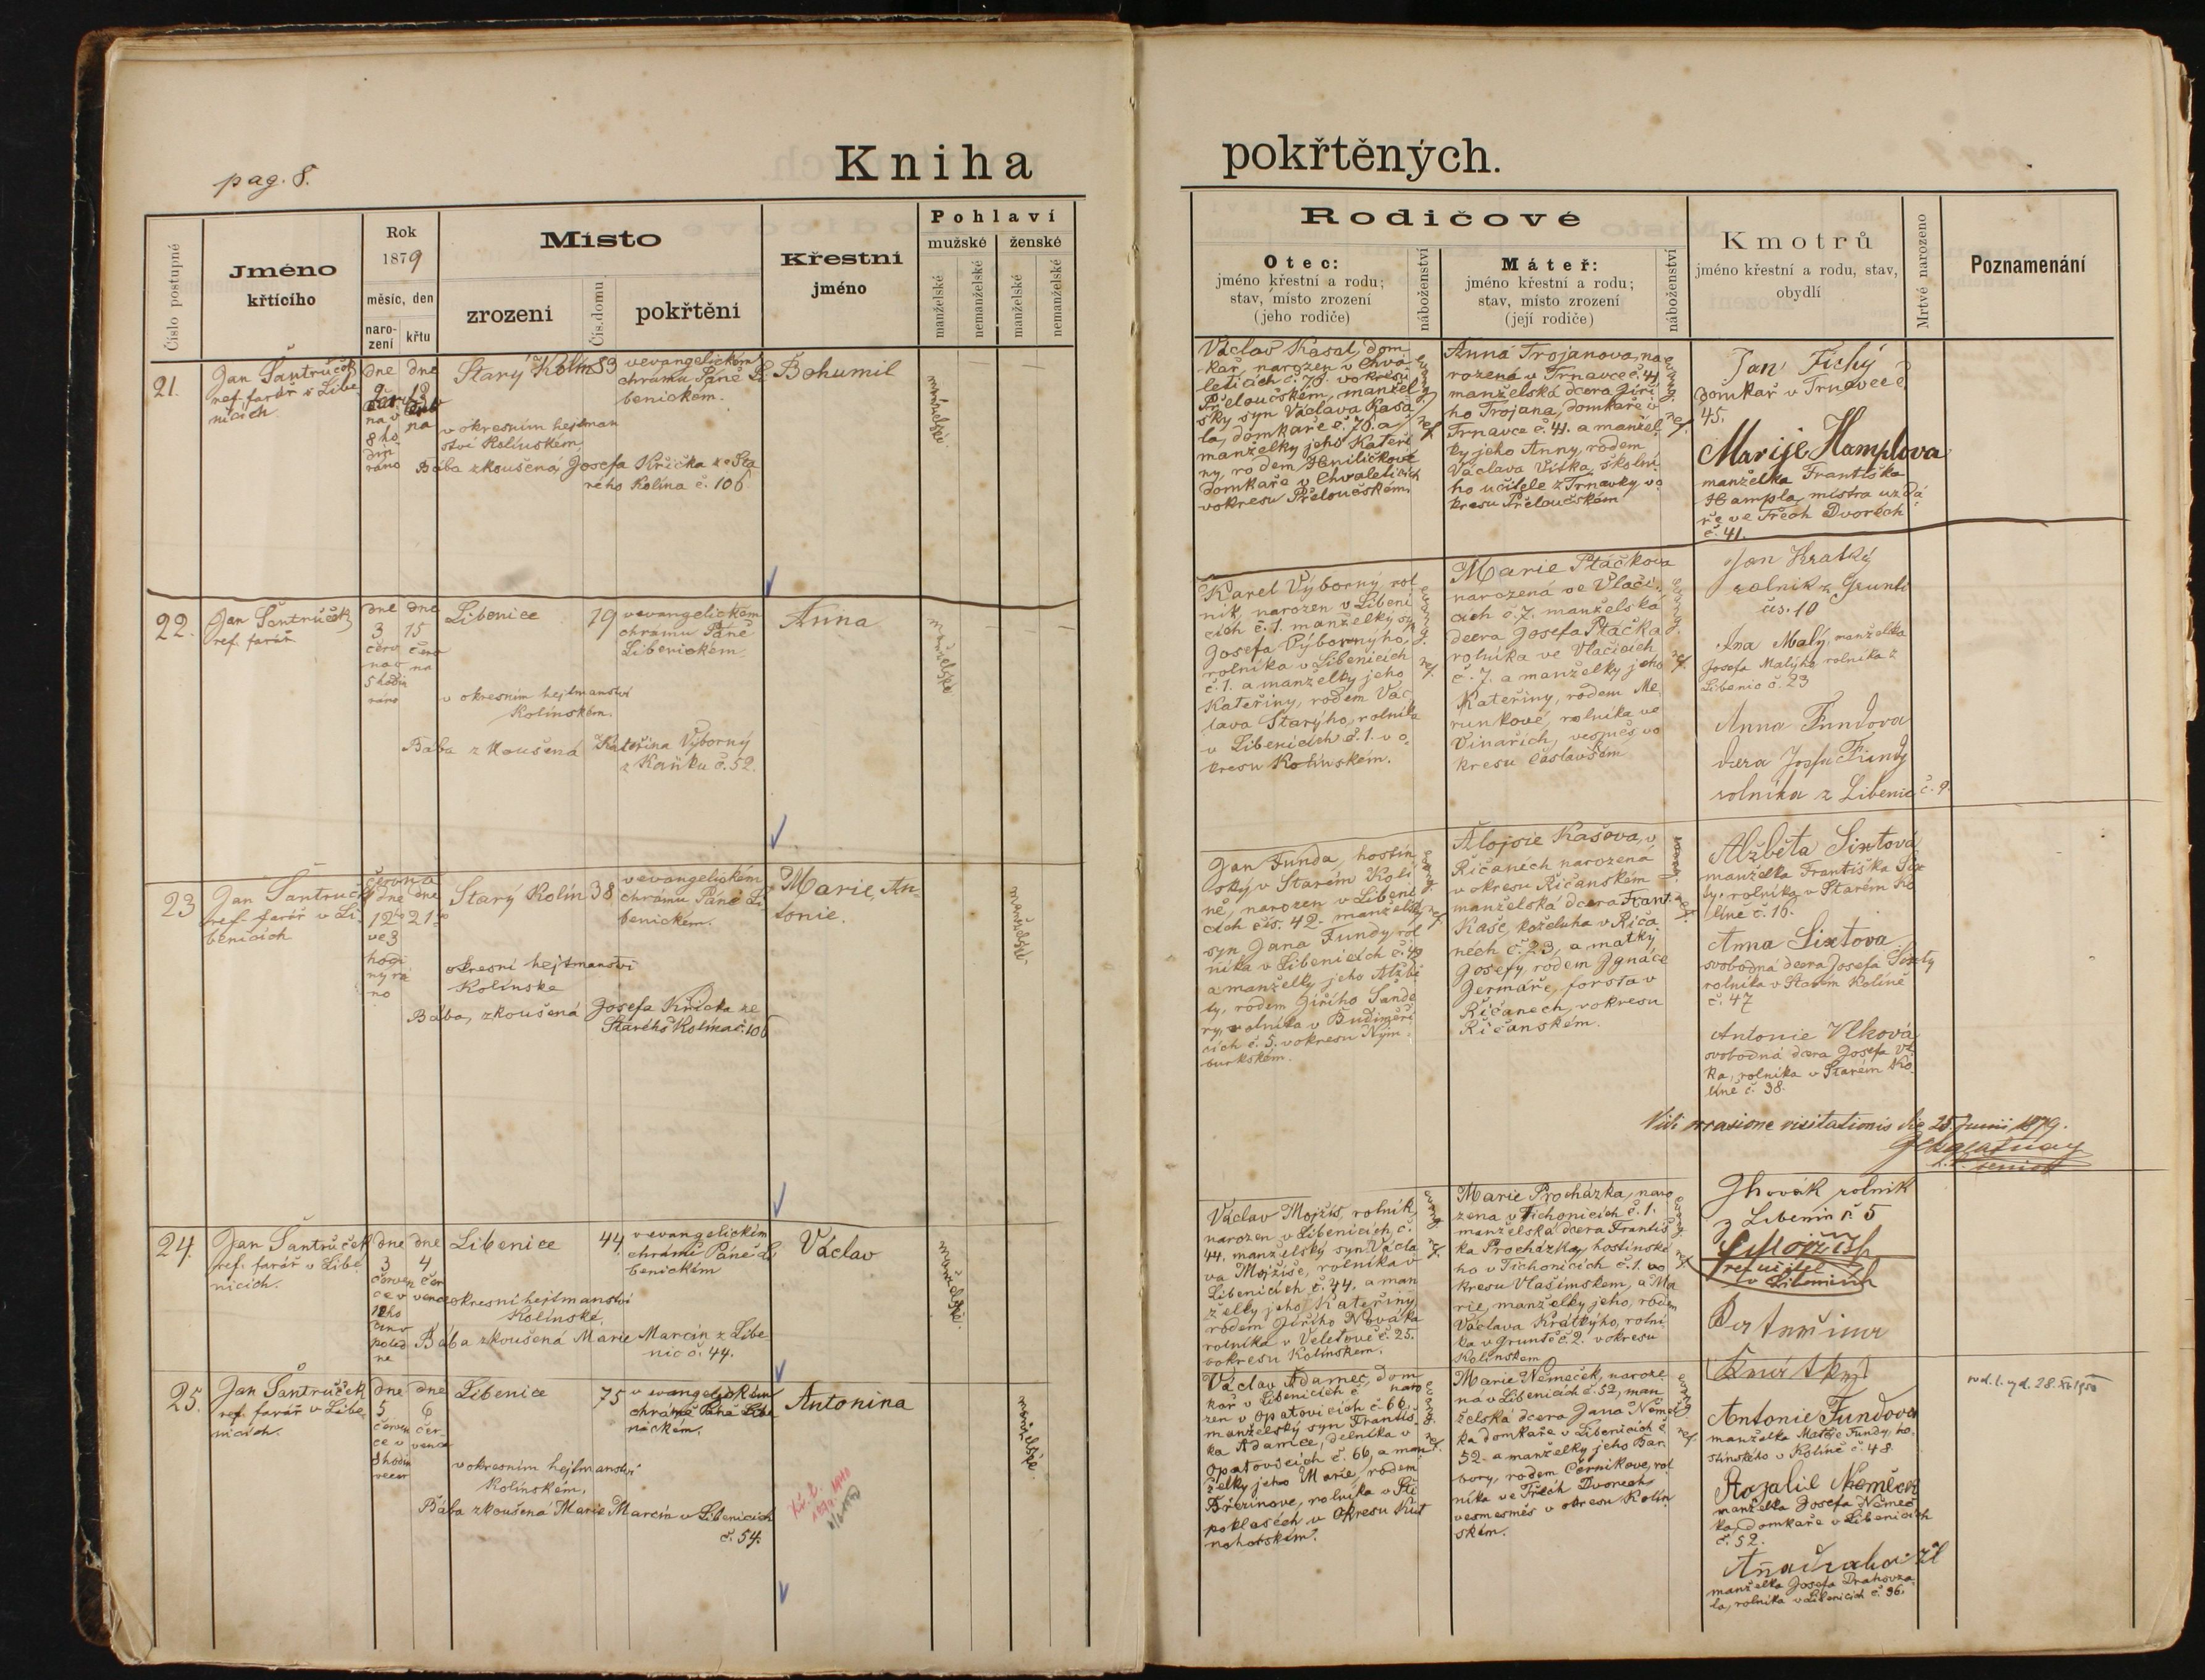 pag. 8.
Kniha
pokřtěných.
Číslo postupné
Jméno
křtícího
Rok
1879
měsíc, den
naro-
zení
křtu
Místo
zrození
Čís. domu
pokřtění
Křestní
jméno
Pohlaví
mužské
ženské
manželské
nemanželské
manželské
nemanželské
Rodičové
Otec:
jméno křestní a rodu;
stav, místo zrození
(jeho rodiče)
náboženství
Máteř:
jméno křestní a rodu;
stav, místo zrození
(její rodiče)
náboženství
Kmotrů
jméno křestní a rodu, stav,
obydlí
Mrtvě narozeno
Poznamenání
21.
Jan Šantrůček
ref. farář v Libe
nicích.
dne
na v
8 ho
din
ráno
dne
na
Starý Kolín
83
v okresním hejtman
ství Kolínském
v evangelickém
chrámu Páně Li
benickém.
Bába zkoušená Josefa Křička ze Sta
rého Kolína č. 106
Bohumil
manželské
Václav Kasal, dom
kář, narozen v Chva
leticích č. 70. v okresu
Přeloučském, manžel
ský syn Václava Kasa
la, domkaře č. 70. a
manželky jeho Kateři
ny, rodem Hniličkové
domkaře v Chvaleticích
v okresu Přeloučském
evang. ref.
Anna Trojanova, na
rozená v Trnavce č. 41
manželská dcera Jiří
ho Trojana, domkaře v
Trnavce č. 41. a manžel
ky jeho Anny, rodem
Václava Vítka, školní
ho učitele z Trnavky vo
kresu Přeloučském
evang. ref.
Jan Tichý
domkař v Trnavce č
45.
Marije Hamplova
manželka Františka
Hampla, mistra uzdá
ře ve Třech Dvorech
č. 41.
22.
Jan Šantrůček
ref. farář
dne
3
červ
na v
5 hodin
ráno
dne
15
červ
na
Libenice
19
v okresním hejtmanství
Kolínském.
v evangelickém
chrámu Páně
Libenickém.
Bába zkoušená Kateřina Výborný
z Kaňku č. 52.
Anna
manželské
Karel Výborný, rol
ník, narozen v Libeni
cích č. 1. manželský syn
Josefa Výborného,
rolníka v Libenicích
č. 1. a manželky jeho
Kateřiny, rodem Vác
lava Starýho, rolníka
v Libenicích č. 1. v o
kresu Kolínském.
evang. ref.
Marie Ptáčkova
narozená ve Vlači
cích č. 7. manželská
dcera Josefa Ptáčka
rolníka ve Vlačicích
č. 7. a manželky jeho
Kateřiny, rodem Me
runkové, rolníka ve
Vinařích, vesměs vo
kresu Čáslavském
evang. ref.
Jan Kratký
rolník z Grunti
čís. 10
Ana Malý, manželka
Josefa Malýho rolníka z
Libenic č. 23
Anna Fundova
dcera Josefa Fundy
rolníka z Libenic č. 9.
23
Jan Šantrůček
ref. farář v Li
benicích
června
dne
12ho
ve 3
hodi
ny rá
no
dne
21ho
Starý Kolín
38
okresní hejtmanství
Kolínské
v evangelickém
chrámu Páně Li
benickém.
Bába, zkoušená Josefa Křička ze
Starého Kolína č. 106
Marie, An-
tonie.
manželské
Jan Funda, hostin
ský v Starém Kolí
ně, narozen v Libeni
cích čís. 42. manželský
syn Jana Fundy rol
níka v Libenicích č. 42
a manželky jeho Alžbě
ty, rodem Jiřího Šande
ry, rolníka v Budiměři
cích č. 5. v okresu Nym
burkském.
evang. ref.
Alojsie Kašova, v
Říčanech narozená
v okresu Říčanském
manželská dcera Frant.
Kaše, koželuha v Říča
nech č. 23, a matky
Josefy, rodem Ignáce
Germáře, forsta v
Říčanech, v okresu
Říčanském.
Alžběta Sixtová
manželka Františka Six
ty, rolníka v Starém Ko
líně č. 16.
Anna Sixtova
svobodná dcera Josefa Sixty
rolníka v Starém Kolíně
č. 47
Antonie Vlková
svobodná dcera Josefa Vl
ka, rolníka v Starém Ko
líně č. 38.
Vidi occasione visitationis die 25. Junii 1879.
senior
24.
Jan Šantrůček
ref. farář v Libe
nicích.
dne
3
červen
ce v
12ho
poled
ne
dne
4
čer
vence
Libenice
44.
okresní hejtmanství
Kolínské.
v evangelickém
chrámě Páně Li
benickém
Bába zkoušená Marie Marcín z Libe
nic č. 44.
Václav
manželské.
Václav Mojžíš, rolník,
narozen v Libenicích č.
44. manželský syn Václa
va Mojžíše, rolníka v
Libenicích č. 44. a man
želky jeho Kateřiny
rodem Jiřího Nováka
rolníka v Veletově č. 25.
v okresu Kolínském.
evang. ref.
Marie Procházka, naro
zena v Tichonicích č. 1.
manželská dcera Františ
ka Procházky, hostinské
ho v Tichonicích č. 1. vo
kresu Vlašimském, a Ma
rie, manželky jeho, rodem
Václava Krátkýho, rolní
ka v Gruntě č. 2. v okresu
Kolínském
evang. ref.
rolník
z Libenic č. 5
Mojžíš
ref. učitel
v Libenicích
Kateřina
Kratký
25.
Jan Šantrůček
ref. farář v Libe
nicích.
dne
5
červen
ce v
8 hodin
večer
dne
6
čer-
vence
Libenice
75
v okresním hejtmanství
Kolínském.
v evangelickém
chrámě Páně Libe
nickém.
Bába zkoušená Marie Marcín v Libenicích
č. 54.
Antonina
manželské
Václav Adamec, dom
kář v Libenicích č naro
zen v Opatovicích č. 66.
manželský syn Františ
ka Adamce, dělníka v
Opatovicích č. 66, a man
želky jeho Marie, rodem
Březinove, rolníka v Ští
poklasech v okresu Kut
nohorském.
evang. ref.
Marie Němeček, naroze
na v Libenicích č. 52, man
želská dcera Jana Němeč
ka domkaře v Libenicích č.
52. a manželky jeho Bar
bory, rodem Černíkove, rol
níka ve Třech Dvorech
vesmesměs v okresu Kolín
ském.
evang. ref.
Antonie Fundova
manželka Matěje Fundy, ho
stinského v Kolíně č. 48.
Rozalie Němeček
manželka Josefa Němeč
ka, domkaře v Libenicích
č. 52.
manželka Josefa Drahovza
la, rolníka v Libenicích č. 36.
28. XI. 1950